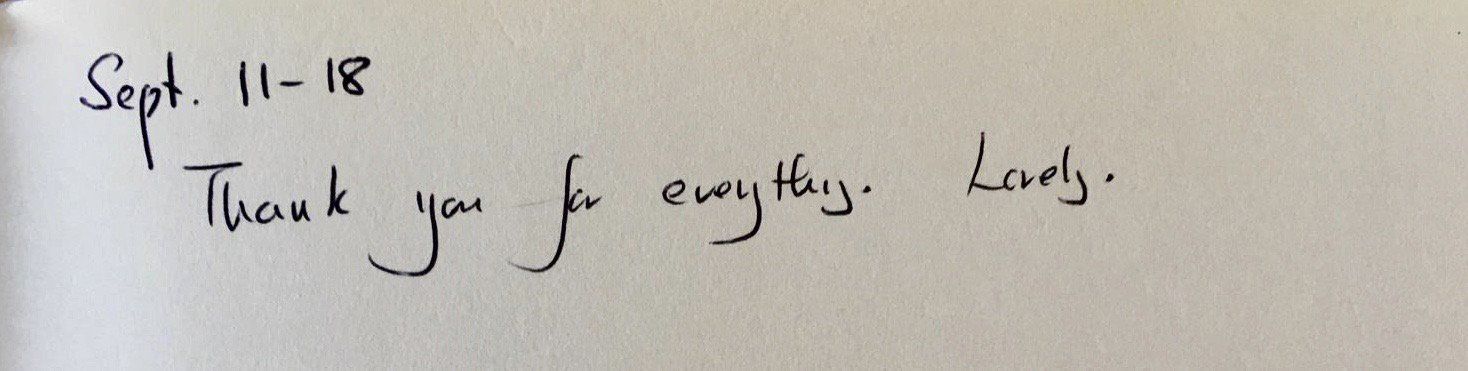 Sept. 11-18
Thank you for everything. Lovely.